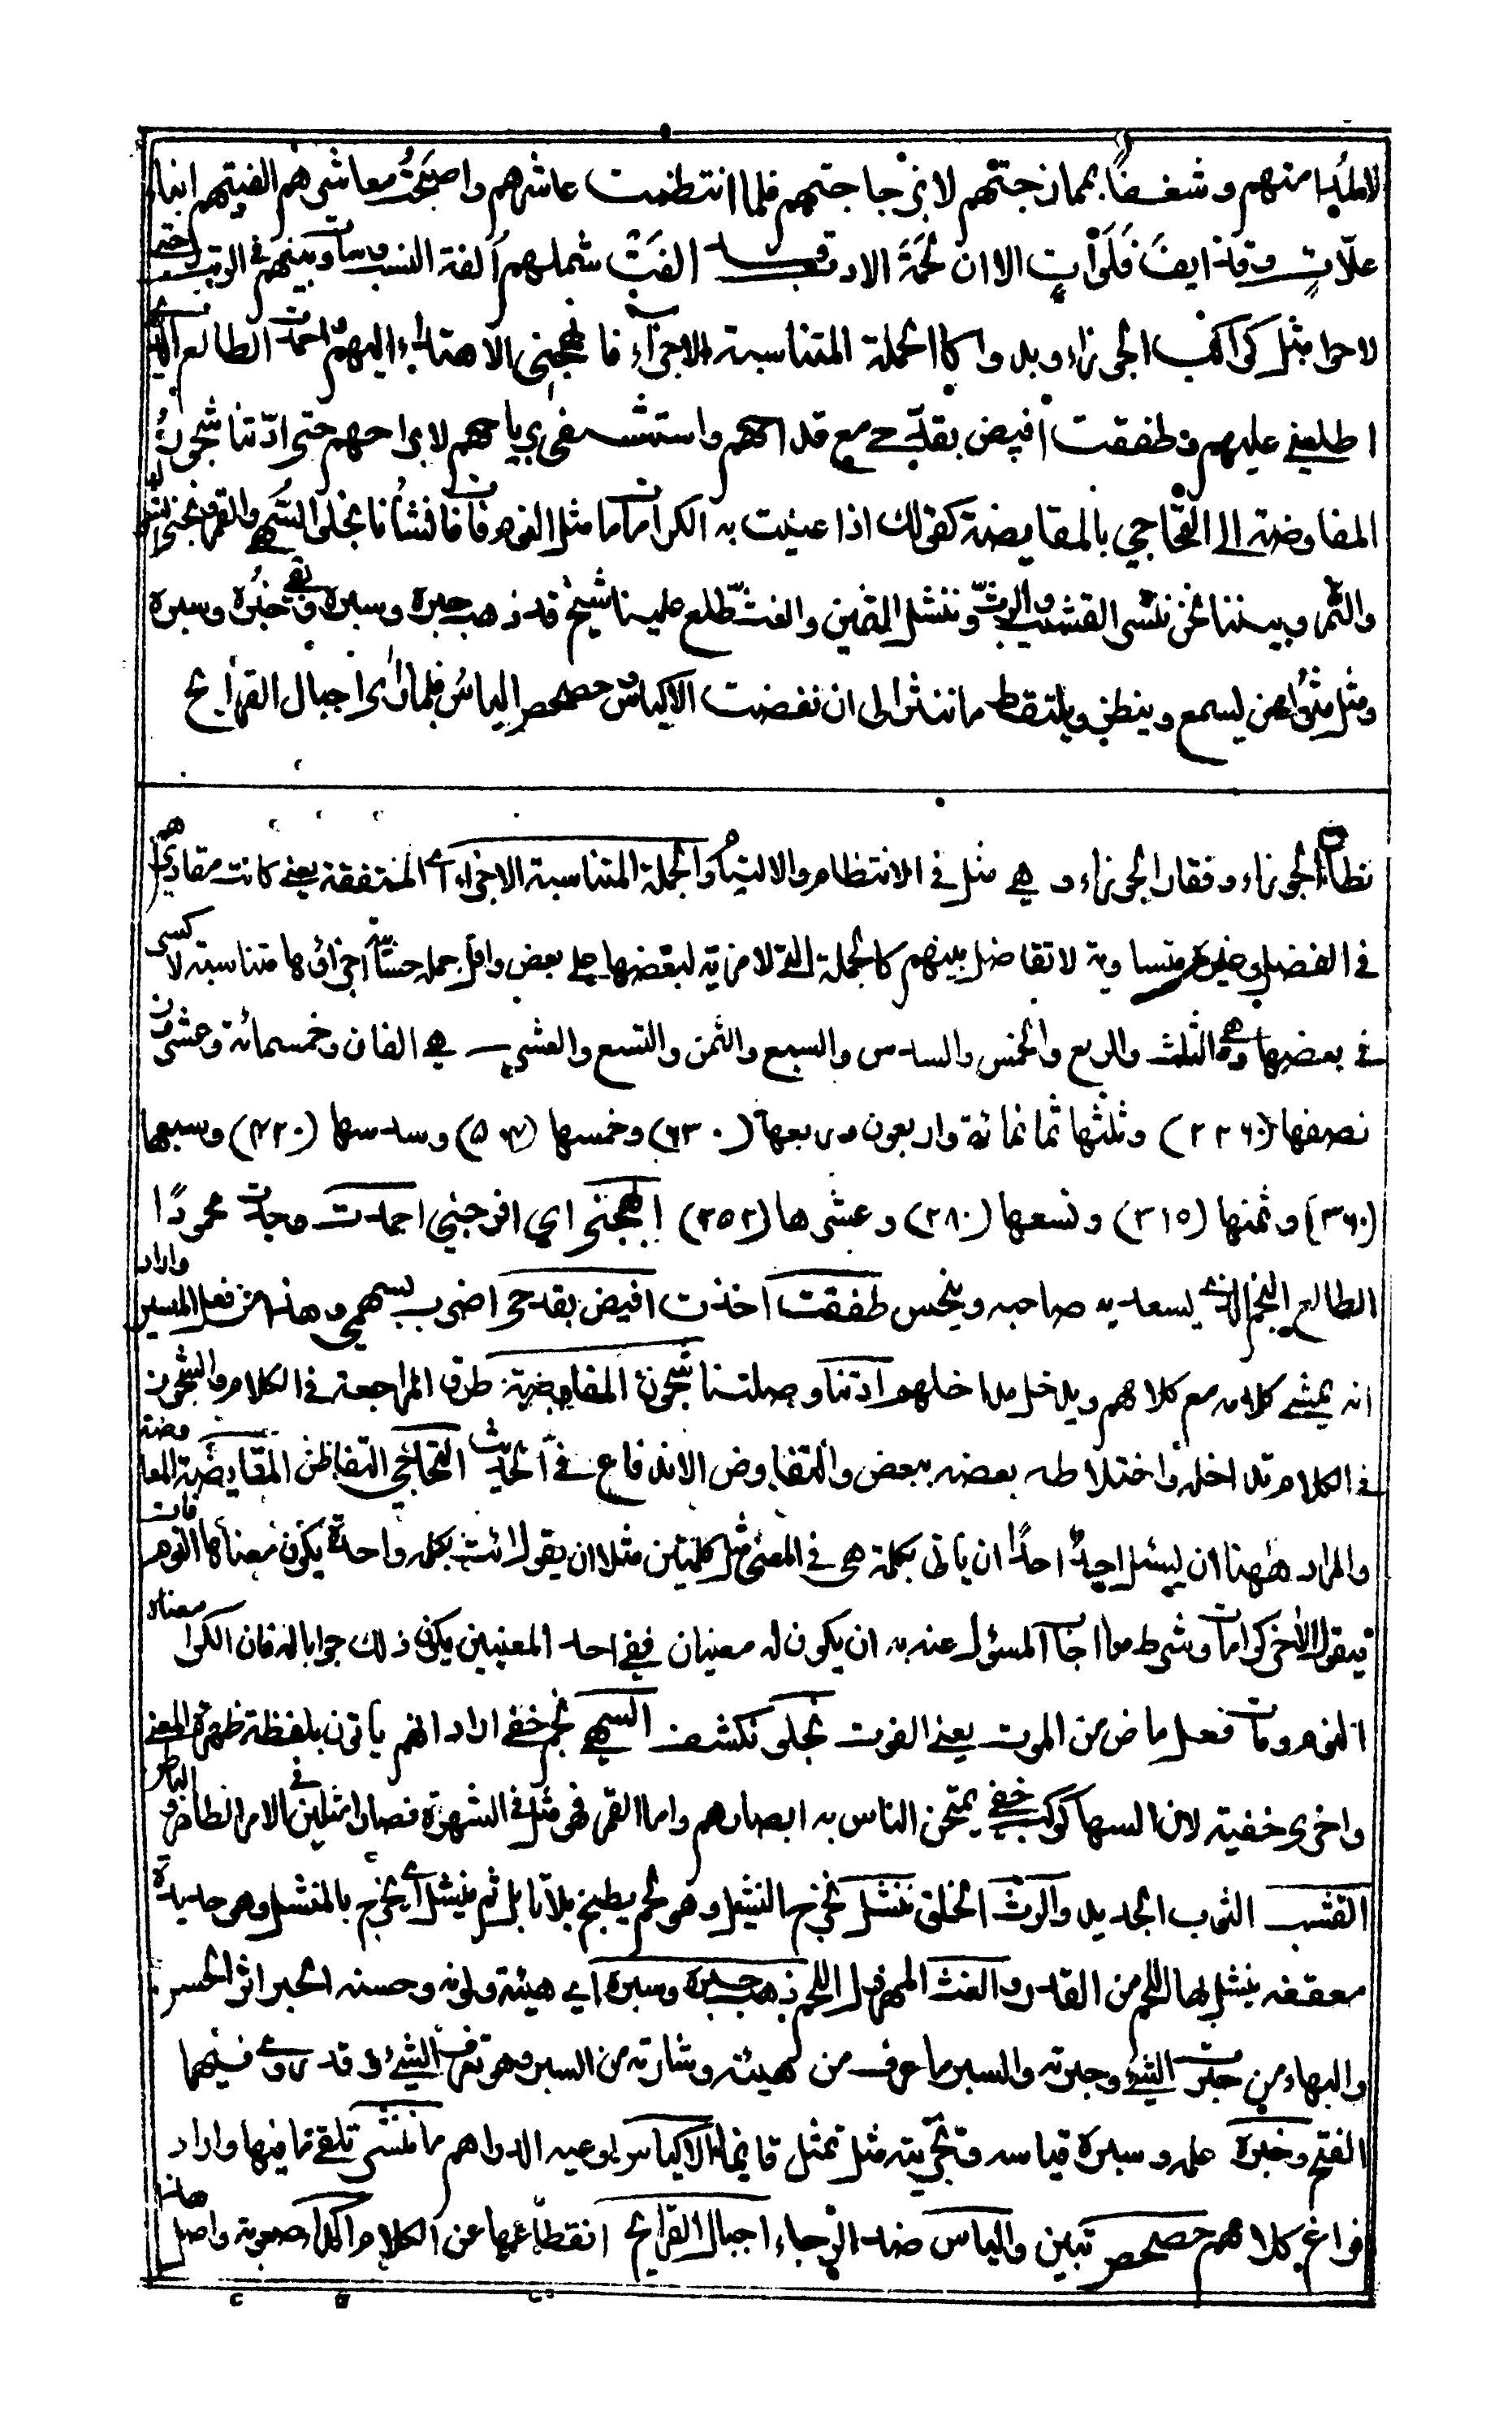 لاملدا منهم وشغفا بممازجتهم لا بزجاجتهم فلما انتظمت عاشرهم واصبحت معاشرهم الفيتهم ابناء
علات وقذائف فلوات الا ان لحمة الادب قد الفت شملهم الفة النسب وساوت بينهم في الرتب حتى
لاحوا مثل كواكب الجوزاء وبدوا كالجملة المتناسبة الاجزاء فابهجني الاهتداء اليهم واحمدت الطالع الذي
اطلعني عليهم وطفقت افيض بقدحي مع قداحهم واستشفي برياحهم لا براحهم حتى ادتنا شجون
المفاوضة الى التحاجي بالمقايضة كقولك اذا عنيت به الكرامات ما مثل النوم فات فانشانا نجلو السهى والقمر ونجني الشوك
والثمر وبيننا نحن ننشر القشيب والرث وننشل السمين والغث طلع علينا شيخ قد ذهب حبره وسبره وبقي خبره وسبره
ومثل مثول من يسمع وينظر ويلتقط ما ننثر الى ان نفضت الاكياس وحصحص الياس فلما راى اجبال القرائح
نظام الجوزاء وفقار الجوزاء وهي مثل في الانتظام والالتيام والجملة المتناسبة الاجزاء اي المتفقة يعني كانت مقاديرهم
في الفضل وغيره متساوية لا تفاضل بينهم كالجملة التي لا مزية لبعضها على بعض واقل جملة حسابية اجزاؤها متناسبة لا كسر
في بعضها وهي الثلث والربع والخمس والسدس والسبع والثمن والتسع والعشر هي الفان وخمسمائة وعشرون
نصفها (١٢٦٠) وثلثها ثمانمائة واربعون وربعها (٦٣٠) وخمسها (٥٠٤) وسدسها (٤٢٠) وسبعها
(٣٦٠) وثمنها (٣١٥) وتسعها (٢٨٠) وعشرها (٢٥٢) ابهجني اي افرحني احمدت وجدت محمودا
الطالع النجم الذي يسعد به صاحبه وينحس طفقت اخذت افيض بقدحي اضرب بسهمي وهذا من فعل الميسر واراد
انه يمشي كلامه مع كلامهم ويدخل مداخلهم ادتنا وصلتنا شجون المفاوضة طرق المراجعة في الكلام والشجون
في الكلام تداخله واختلاطه بعضه ببعض والتفاوض الاندفاع في الحديث التحاجي التفاطن المقايضة المعاوضة
والمراد ههنا ان يسئل احد احدا ان ياتي بكلمة هي في المعنى مثل كلمتين مثلا ان يقول ائت بكلمة واحدة يكون معناها النوم فات
فيقول الاخر كرامات وشرط جواب المسؤل عنه به ان يكون له معنيان ففي احد المعنيين يكون ذلك جوابا له فان الكرا معناه
النوم ومات فعل ماض من الموت يعني الفوت نجلو نكشف السهى نجم خفي اراد انهم ياتون بلفظة ظاهرة المعنى
واخرى خفية لان السها كوكب خفي يمتحن الناس به ابصارهم واما القمر فهو مثل في الشهرة فصارا مثلين في الامر الظاهر والباطن
القشب الثوب الجديد والرث الخلق ننشل نخرج النشيل وهو لحم يطبخ بلا تابل ثم ينشل اي يخرج بالمنشل وهو حديدة
معقفة ينشل بها اللحم من القدر والغث المهزول اللحم ذهب حبره وسبره اي هيئته ولونه وحسنه الحبر اثر الحسن
والبهاء من حبرت الشيء وحبرته والسبر ما عرف من هيئته وشارته من السبر وهو تعرف الشيء وقد روي فيهما
الفتح وخبره علمه وسبره قياسه وتجربته مثل تمثل قائما الاكياس اوعية الدراهم ما ننثر تلقي ما فيها واراد
فراغ كلامهم حصحص تبين والياس ضد الرجاء اجبال القرائح انقطاعها عن الكلام واكداء صعوبة واصل هذا